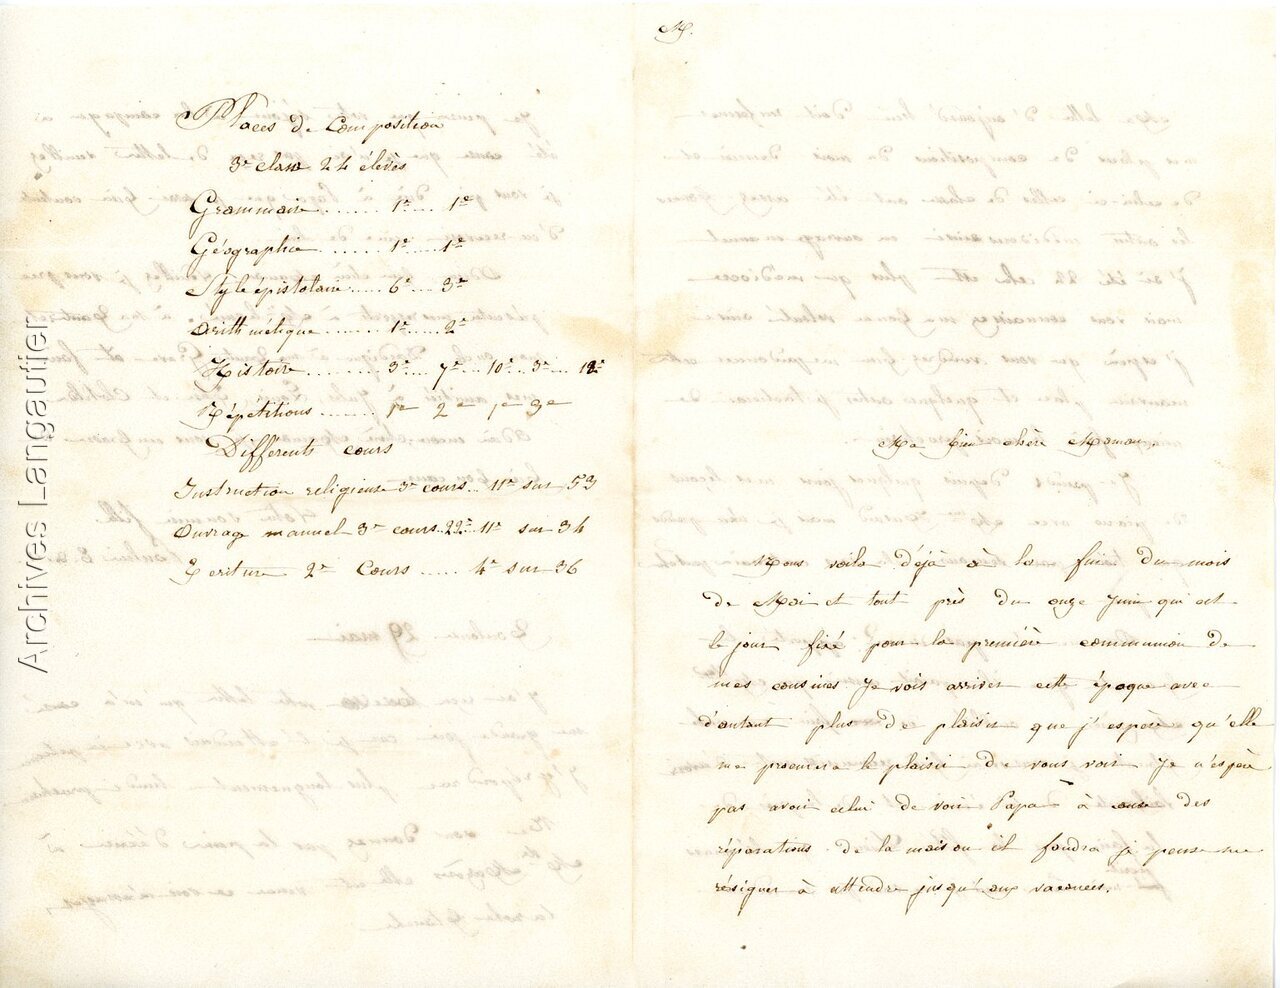 Places de Composition
3e classe 24 élèves
Grammaire ...... 1re .... 1re
Géographie ...... 1re ... 1re
Style épistolaire ..... 6e ... 3e
Arithmétique ....... 1re .... 2e
Histoire ......... 3e ... 7e ... 10e .. 3e ... 12e
Répétitions ....... 1re 2e 1re 3e
Différents cours
Instruction religieuse 3e cours .. 11e sur 53
Ouvrage manuel 3e cours .. 22e 11e sur 34
Ecriture 2e Cours ..... 4e sur 36
M.
Ma bien chère Maman,
Nous voila déjà à la fin du mois
de Mai et tout près du onze Juin qui est
le jour fixé pour la première communion de
mes cousines Je vois arriver cette époque avec
d'autant plus de plaisir que j'espère qu'elle
me procurera le plaisir de vous voir Je n'espère
pas avoir celui de voir Papa à cause des
réparations de la maison il faudra je pense me
résigner à attendre jusqu'aux vacances.
Archives Langautier